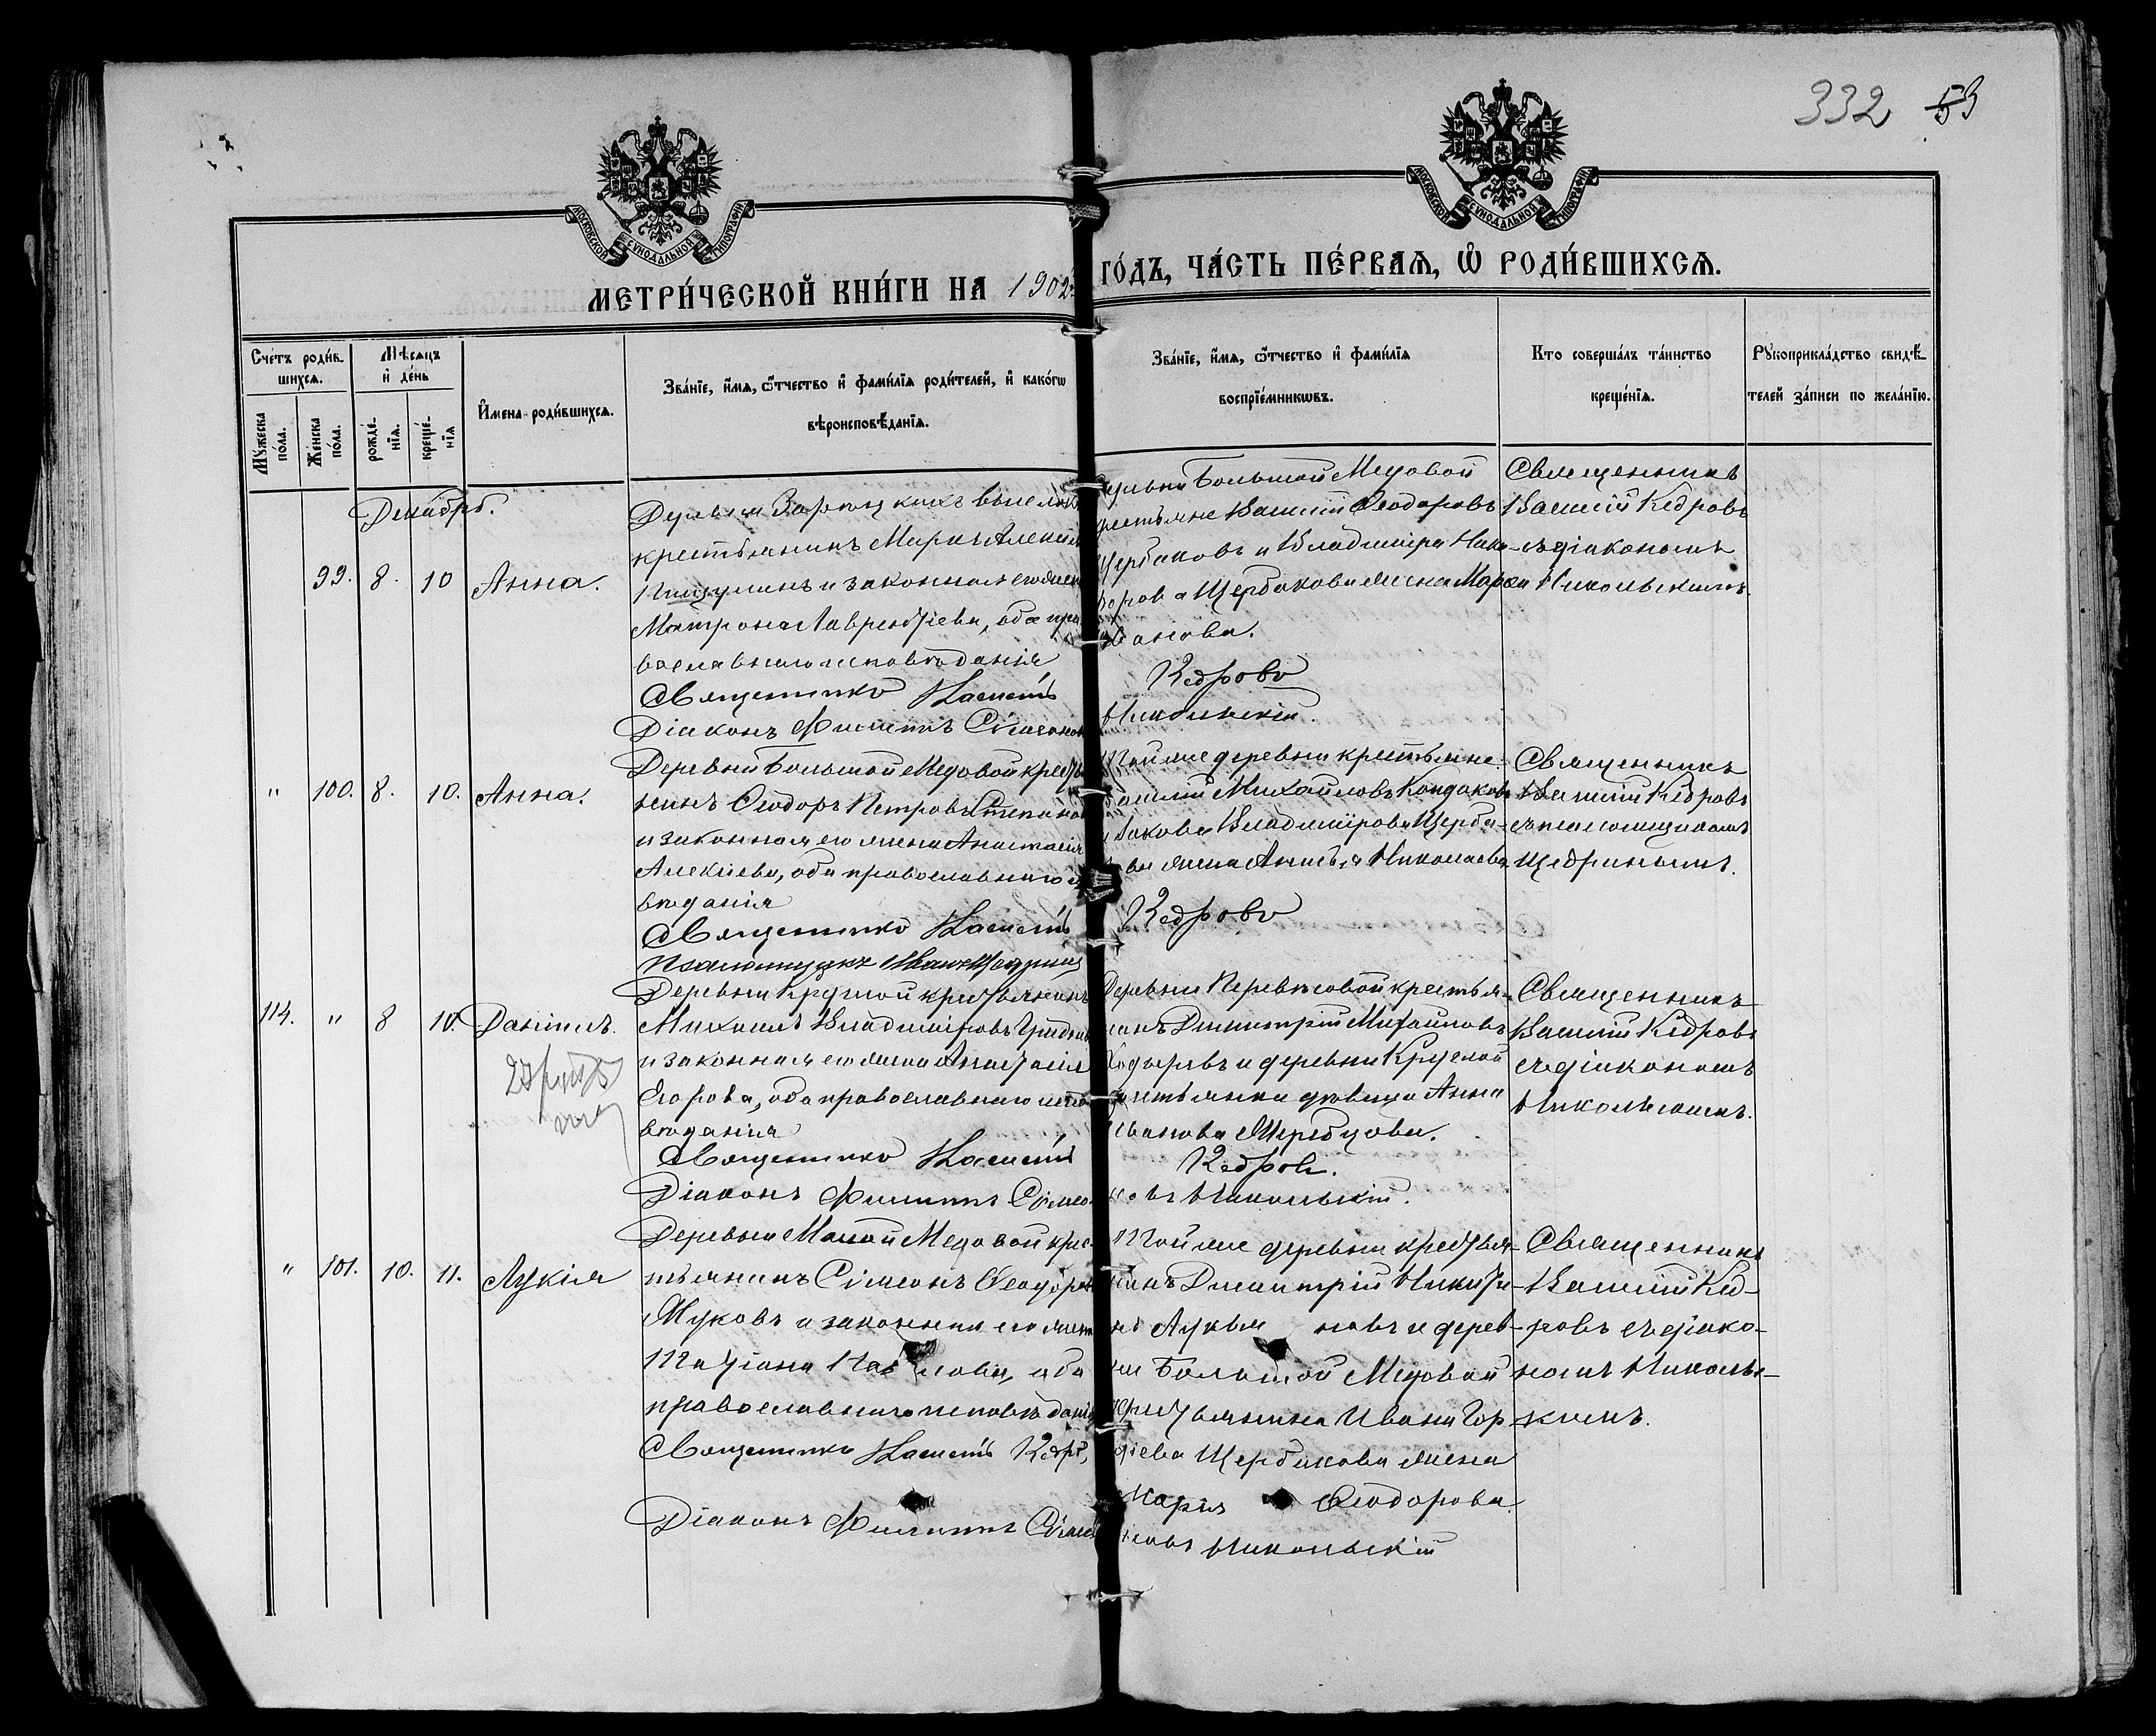 332 53
МОСКОВСКОЙ СѴНОДАЛЬНОЙ ТИПОГРАФІИ
МОСКОВСКОЙ СѴНОДАЛЬНОЙ ТИПОГРАФІИ
МЕТРИ́ЧЕСКОЙ КНИ́ГИ НА 1902 ГО́ДЪ, ЧА́СТЬ ПЕ́РВАѦ, Ѽ РОДИ́ВШИХСѦ.
Сче́тъ роди́в-
шихсѧ.
Мꙋ́жеска по́ла.
Же́нска по́ла.
Мѣ́сѧцъ
и҆ де́нь
рожде́-
нїѧ.
креще́-
нїѧ
И҆мена роди́вшихсѧ.
Зва́нїе, и҆́мѧ, ѻ҆́тчество и҆ фами́лїѧ роди́телей, и҆ како́гѡ
вѣроисповѣ́данїѧ.
Зва́нїе, и҆́мѧ, ѻ҆́тчество и҆ фами́лїѧ
воспрїе́мникѡвъ.
Кто соверша́лъ та́инство
креще́нїѧ.
Рꙋкоприкла́дство свидѣ́-
телей за́писи по жела́нїю.
Декабрь.
99. 8. 10 Анна.
Деревни выселокъ
крестьянинъ Маркъ Алексѣевъ
и законная его жена
Матрона Лаврентіева, оба пра
вославнаго исповѣданія
Священникъ Василій
Діаконъ Филиппъ Сімеоновъ
деревни Большой Медовой
крестьяне Василій Ѳеодоровъ
Щербаковъ и Владиміра Ники-
форова Щербакова жена Марѳа
Иванова.
Кедровъ
Никольскій.
Священникъ
Василій Кедровъ
съ діакономъ
Никольскимъ.
" 100. 8. 10. Анна.
Деревни Большой Медовой крестья
нинъ Ѳеодоръ Петровъ Степановъ
и законная его жена Анастасія
Алексіева, оба православнаго испо
вѣданія
Священникъ Василій
Псаломщикъ Иванъ Щедринъ
Той же деревни крестьяне:
Василій Михайловъ Кондаковъ
и Іакова Владимірова Щерба-
кова жена Анисья Николаева
Кедровъ
Священникъ
Василій Кедровъ
съ псаломщикомъ
Щедринымъ.
114. " 8 10. Даніилъ.
Деревни Круглой крестьянинъ
Михаилъ Владиміровъ
и законная его жена Анастасія
Егорова, оба православнаго испо
вѣданія
Священникъ Василій
Діаконъ Филиппъ Сімео
Деревни Перевѣсовой крестья-
нинъ Димитрій Михайловъ
Ходыревъ и деревни Круглой
крестьянка дѣвица Анна
Иванова Жеребцова.
Кедровъ.
новъ Никольскій.
Священникъ
Василій Кедровъ
съ діакономъ
Никольскимъ.
" 101. 10. 11. Лукія
Деревни Малой Медовой крес-
тьянинъ Сімеонъ Ѳеодоровъ
Жуковъ и законная его жена
Татіана Павлова, оба
православнаго исповѣданія
Священникъ Василій Кедровъ
Діаконъ Филиппъ Сімео
Той же деревни крестья-
нинъ Димитрій Никити-
нъ Лукья новъ и дерев-
ни Большой Медовой
крестьянина Ивана Гор-
діева Щербакова жена
Марія Ѳеодорова.
новъ Никольскій
Священникъ
Василій Кед-
ровъ съ діако-
номъ Николь-
скимъ.